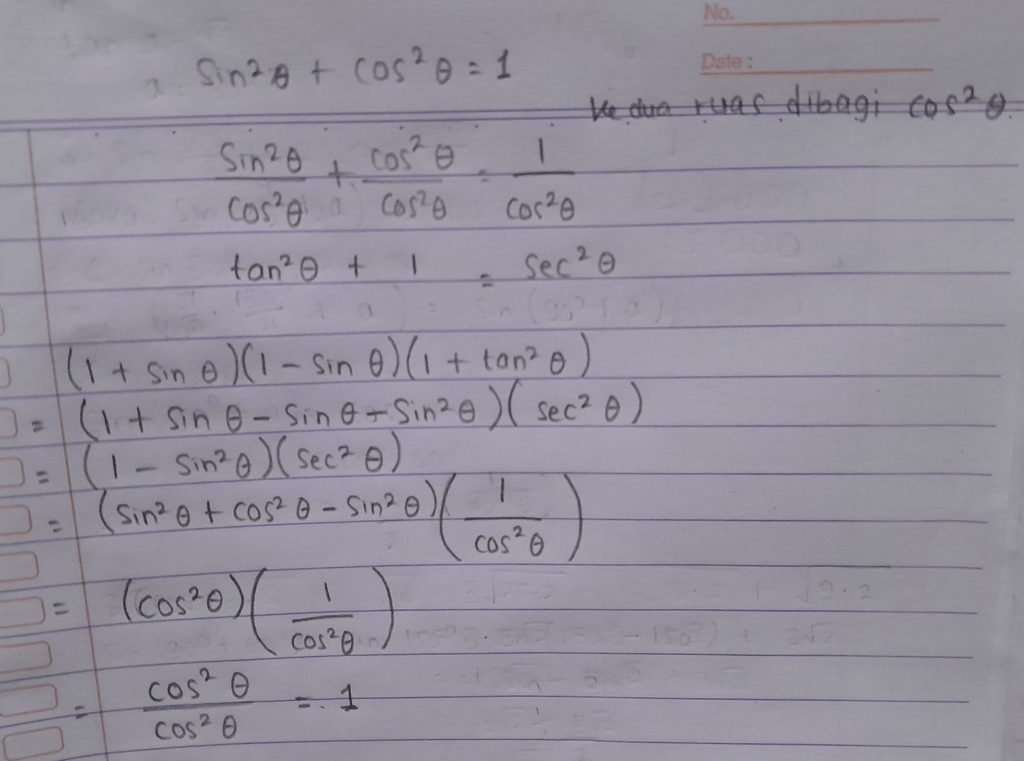 No.
sin²θ + cos²θ = 1
Date:
Ke dua ruas dibagi cos²θ.
sin²θ/cos²θ + cos²θ/cos²θ = 1/cos²θ
tan²θ + 1 = sec²θ
(1 + sin θ)(1 - sin θ)(1 + tan²θ)
= (1 + sin θ - sin θ - sin²θ)(sec²θ)
= (1 - sin²θ)(sec²θ)
= (sin²θ + cos²θ - sin²θ)(1/cos²θ)
= (cos²θ)(1/cos²θ)
= cos²θ/cos²θ = 1